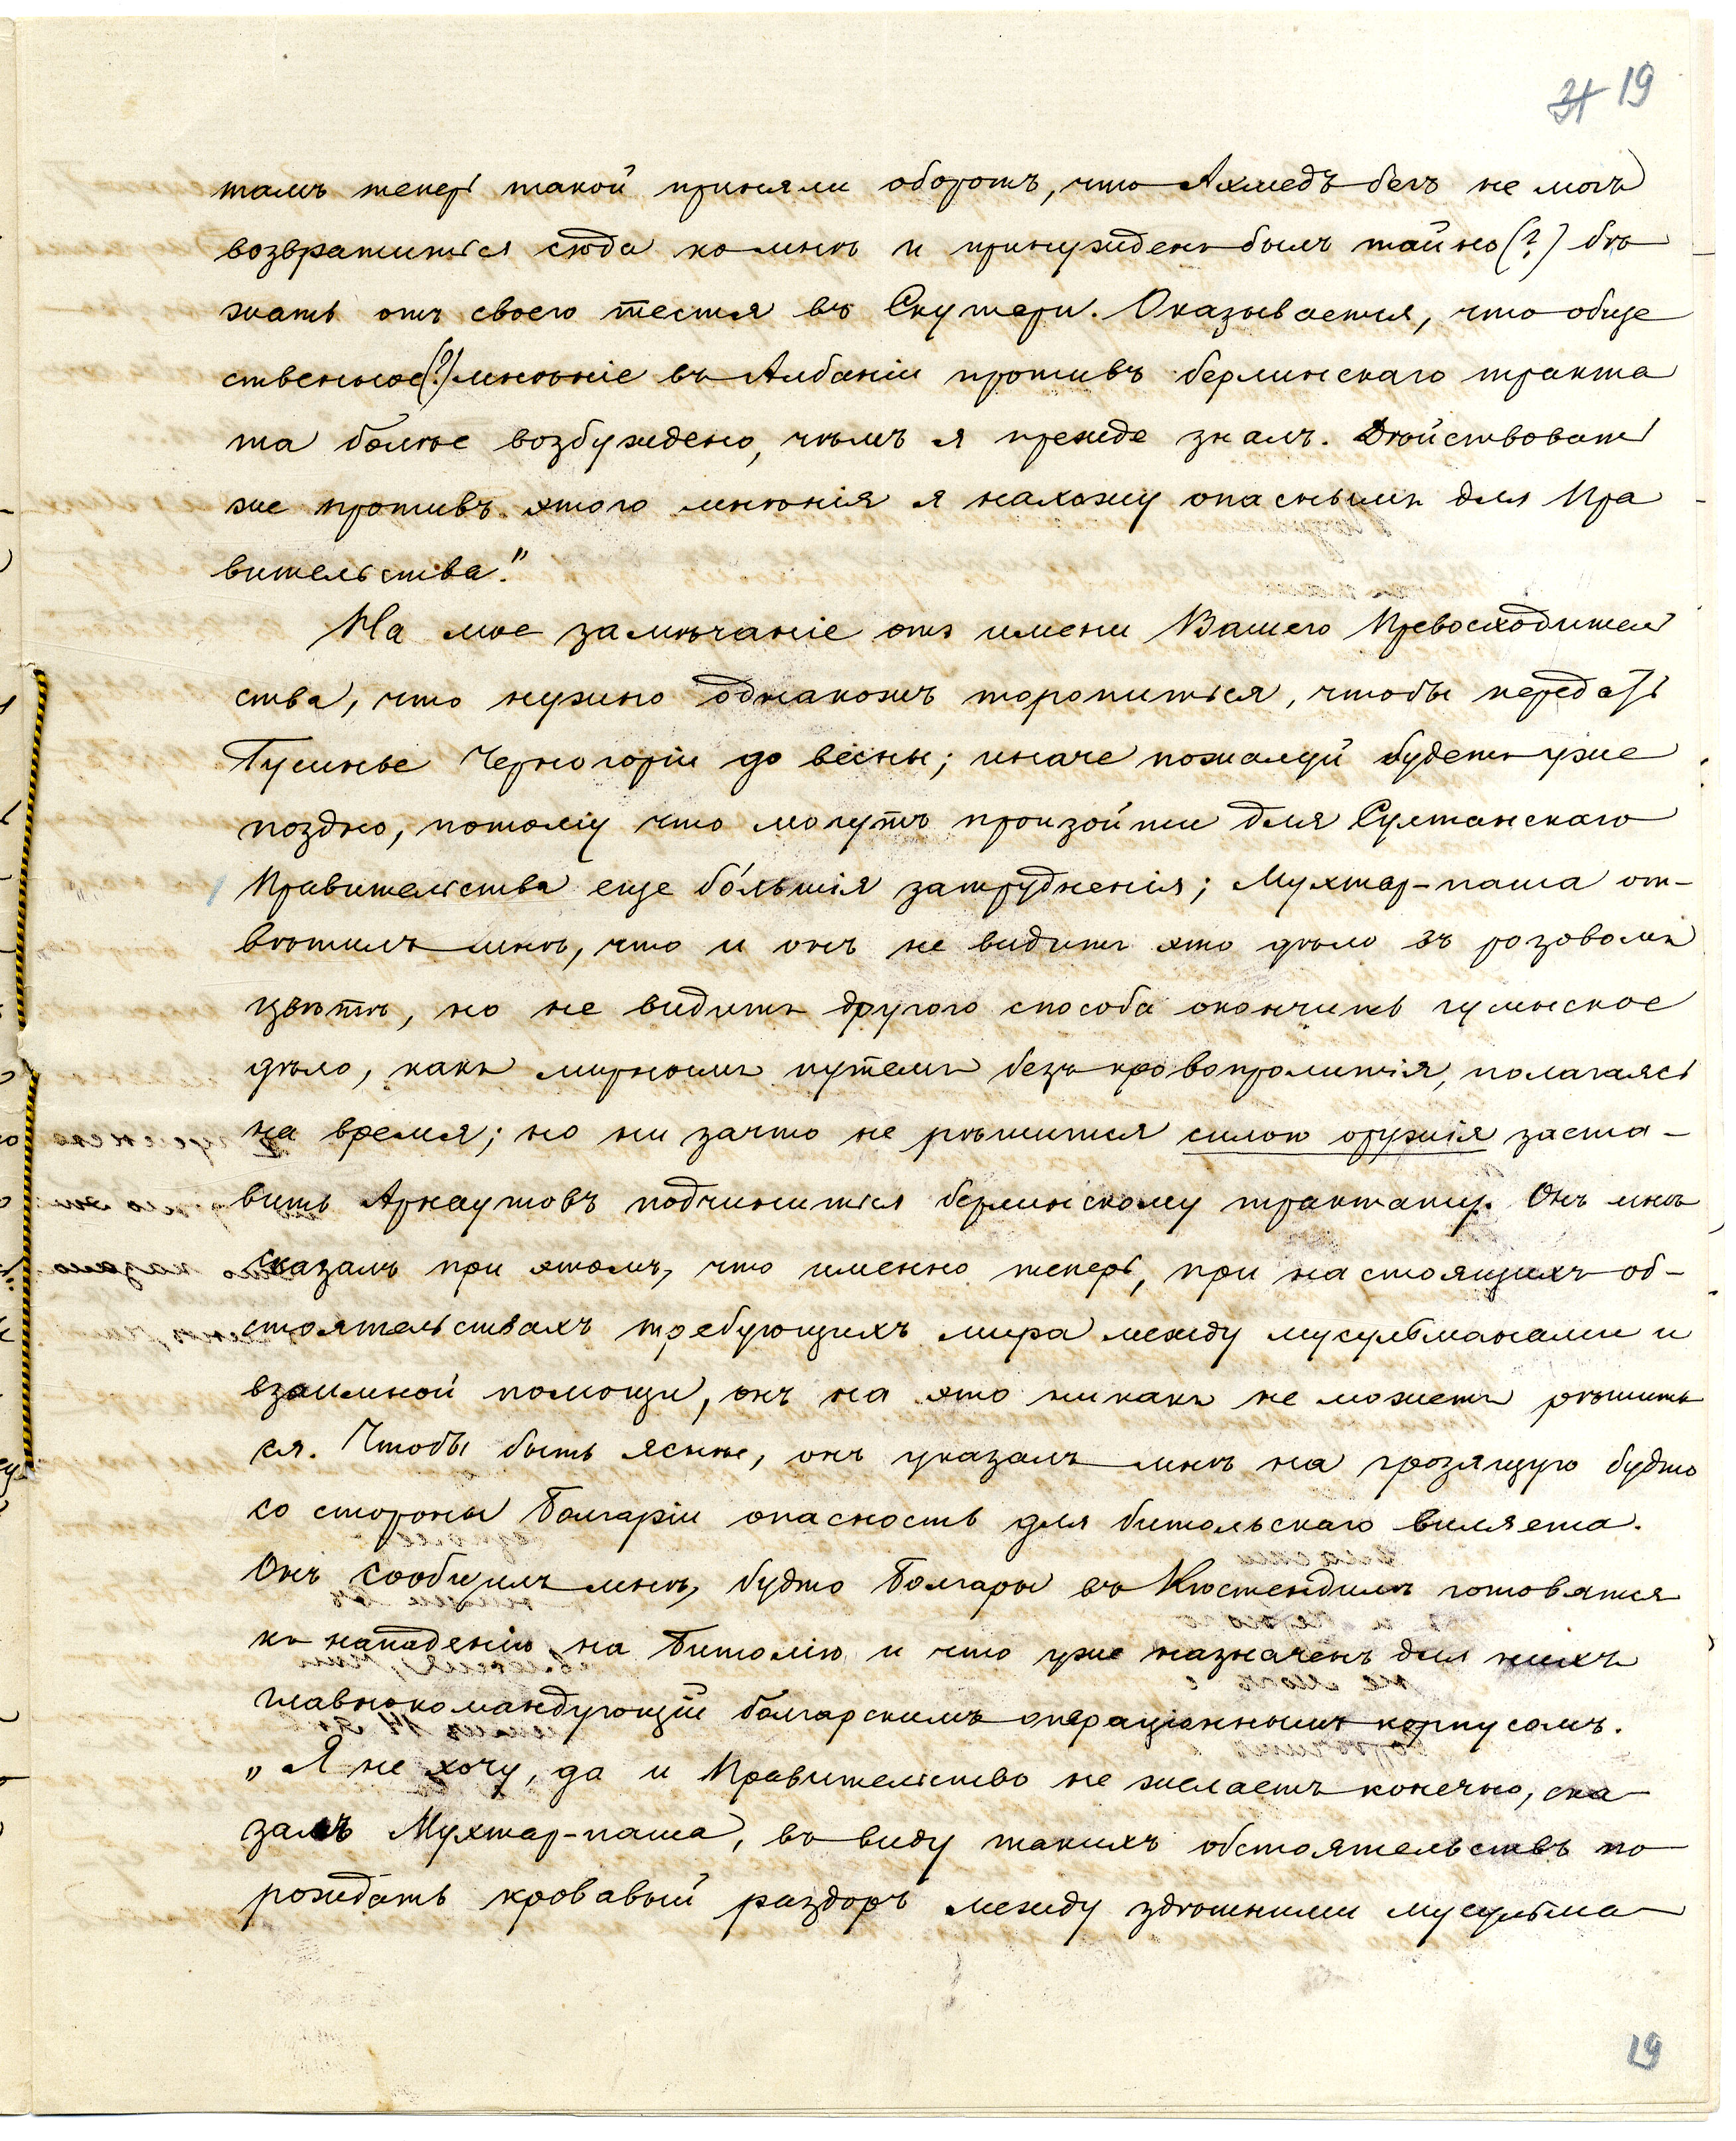 31 19
тамъ теперь такой приняли оборотъ, что Ахмедъ-бегъ не могъ
возвратиться сюда ко мнѣ и принужденъ былъ тайно (?) бѣ
жать отъ своего тестя въ Скутари. Оказывается, что обще
ственное (?) мнѣніе въ Албаніи противъ берлинскаго тракта
та болѣе возбуждено, чѣмъ я прежде зналъ. Дѣйствовать
же противъ этого мнѣнія я нахожу опаснымъ для Пра
вительства."
На мое замѣчаніе отъ имени Вашего Превосходитель
ства, что нужно однакожъ торопиться, чтобы передать
Гусинье Черногоріи до весны; иначе пожалуй будетъ уже
поздно, потому что могутъ произойти для Султанскаго
Правительства еще бо́льшія затрудненія; Мухтар-паша от-
вѣтилъ мнѣ, что и онъ не видитъ это дѣло въ розовомъ
цвѣтѣ, но не видитъ другого способа окончить гусинское
дѣло, какъ мирнымъ путемъ безъ кровопролитія, полагаясь
на время; но ни зачто не рѣшится силою оружія заста-
вить Арнаутовъ подчиниться берлинскому трактату. Онъ мнѣ
сказалъ при этомъ, что именно теперь, при настоящихъ об-
стоятельствахъ требующихъ мира между мусульманами и
взаимной помощи, онъ на это никакъ не можетъ рѣшить
ся. Чтобы быть яснѣе, онъ указалъ мнѣ на грозящую будто
со стороны Болгаріи опасность для битольскаго вилаета.
Онъ сообщилъ мнѣ, будто Болгары въ Кюстендилѣ готовятся
къ нападенію на Битолію и что уже назначенъ для нихъ
главнокомандующій болгарскимъ операціоннымъ корпусомъ.
„Я не хочу, да и Правительство не желаетъ конечно, ска-
залъ Мухтар-паша, въ виду такихъ обстоятельствъ по
рождать кровавый раздоръ между здѣшними мусульма-
19